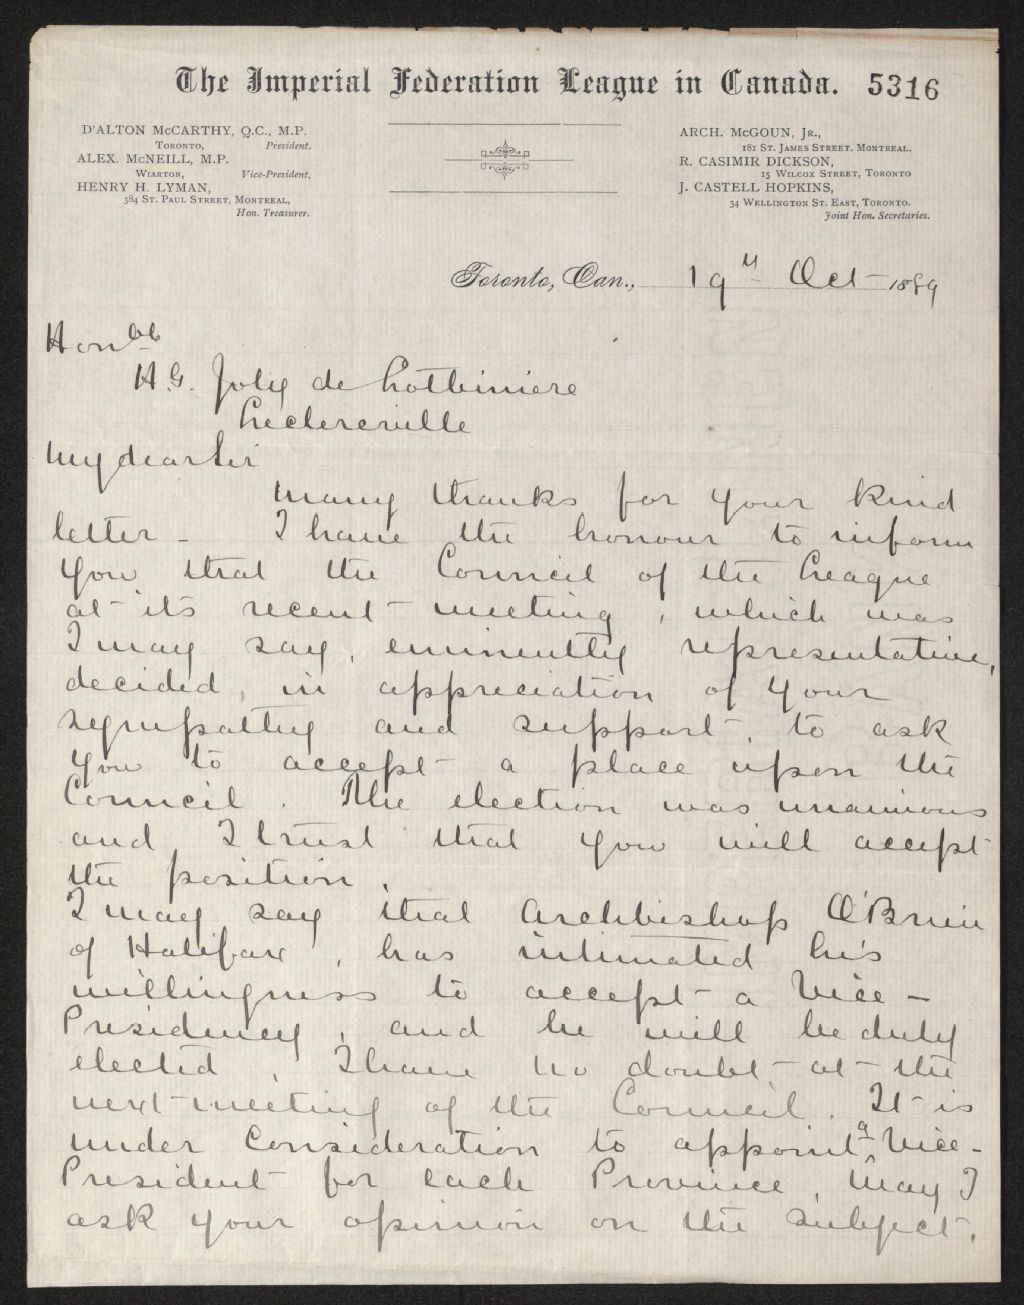 The Imperial Federation League in Canada. 5316
D'ALTON McCARTHY, Q.C., M.P.
TORONTO, President.
ALEX. McNEILL, M.P.
WIARTON, Vice-President.
HENRY H. LYMAN,
384 ST. PAUL STREET, MONTREAL,
Hon. Treasurer.
ARCH. McGOUN, JR.,
181 ST. JAMES STREET. MONTREAL.
R. CASIMIR DICKSON,
15 WILCOX STREET, TORONTO
J. CASTELL HOPKINS,
34 WELLINGTON ST. EAST, TORONTO.
Joint Hon. Secretaries.
Toronto, Can., 19th Oct 1889
Honble
H.G. Joly de Lotbiniere
Leclercville
My dear Sir
Many thanks for your kind
letter - I have the honour to inform
you that the Council of the League
at its recent meeting, which was
I may say, eminently representative,
decided, in appreciation of your
sympathy and support, to ask
you to accept a place upon the
Council. The election was unanimous
and I trust that you will accept
the position.
I may say that Archbishop O'Brien
of Halifax, has intimated his
willingness to accept a Vice-
Presidency, and he will be duly
elected, I have no doubt at the
next meeting of the Council. It is
under consideration to appoint a Vice-
President for each Province, may I
ask your opinion on the subject.